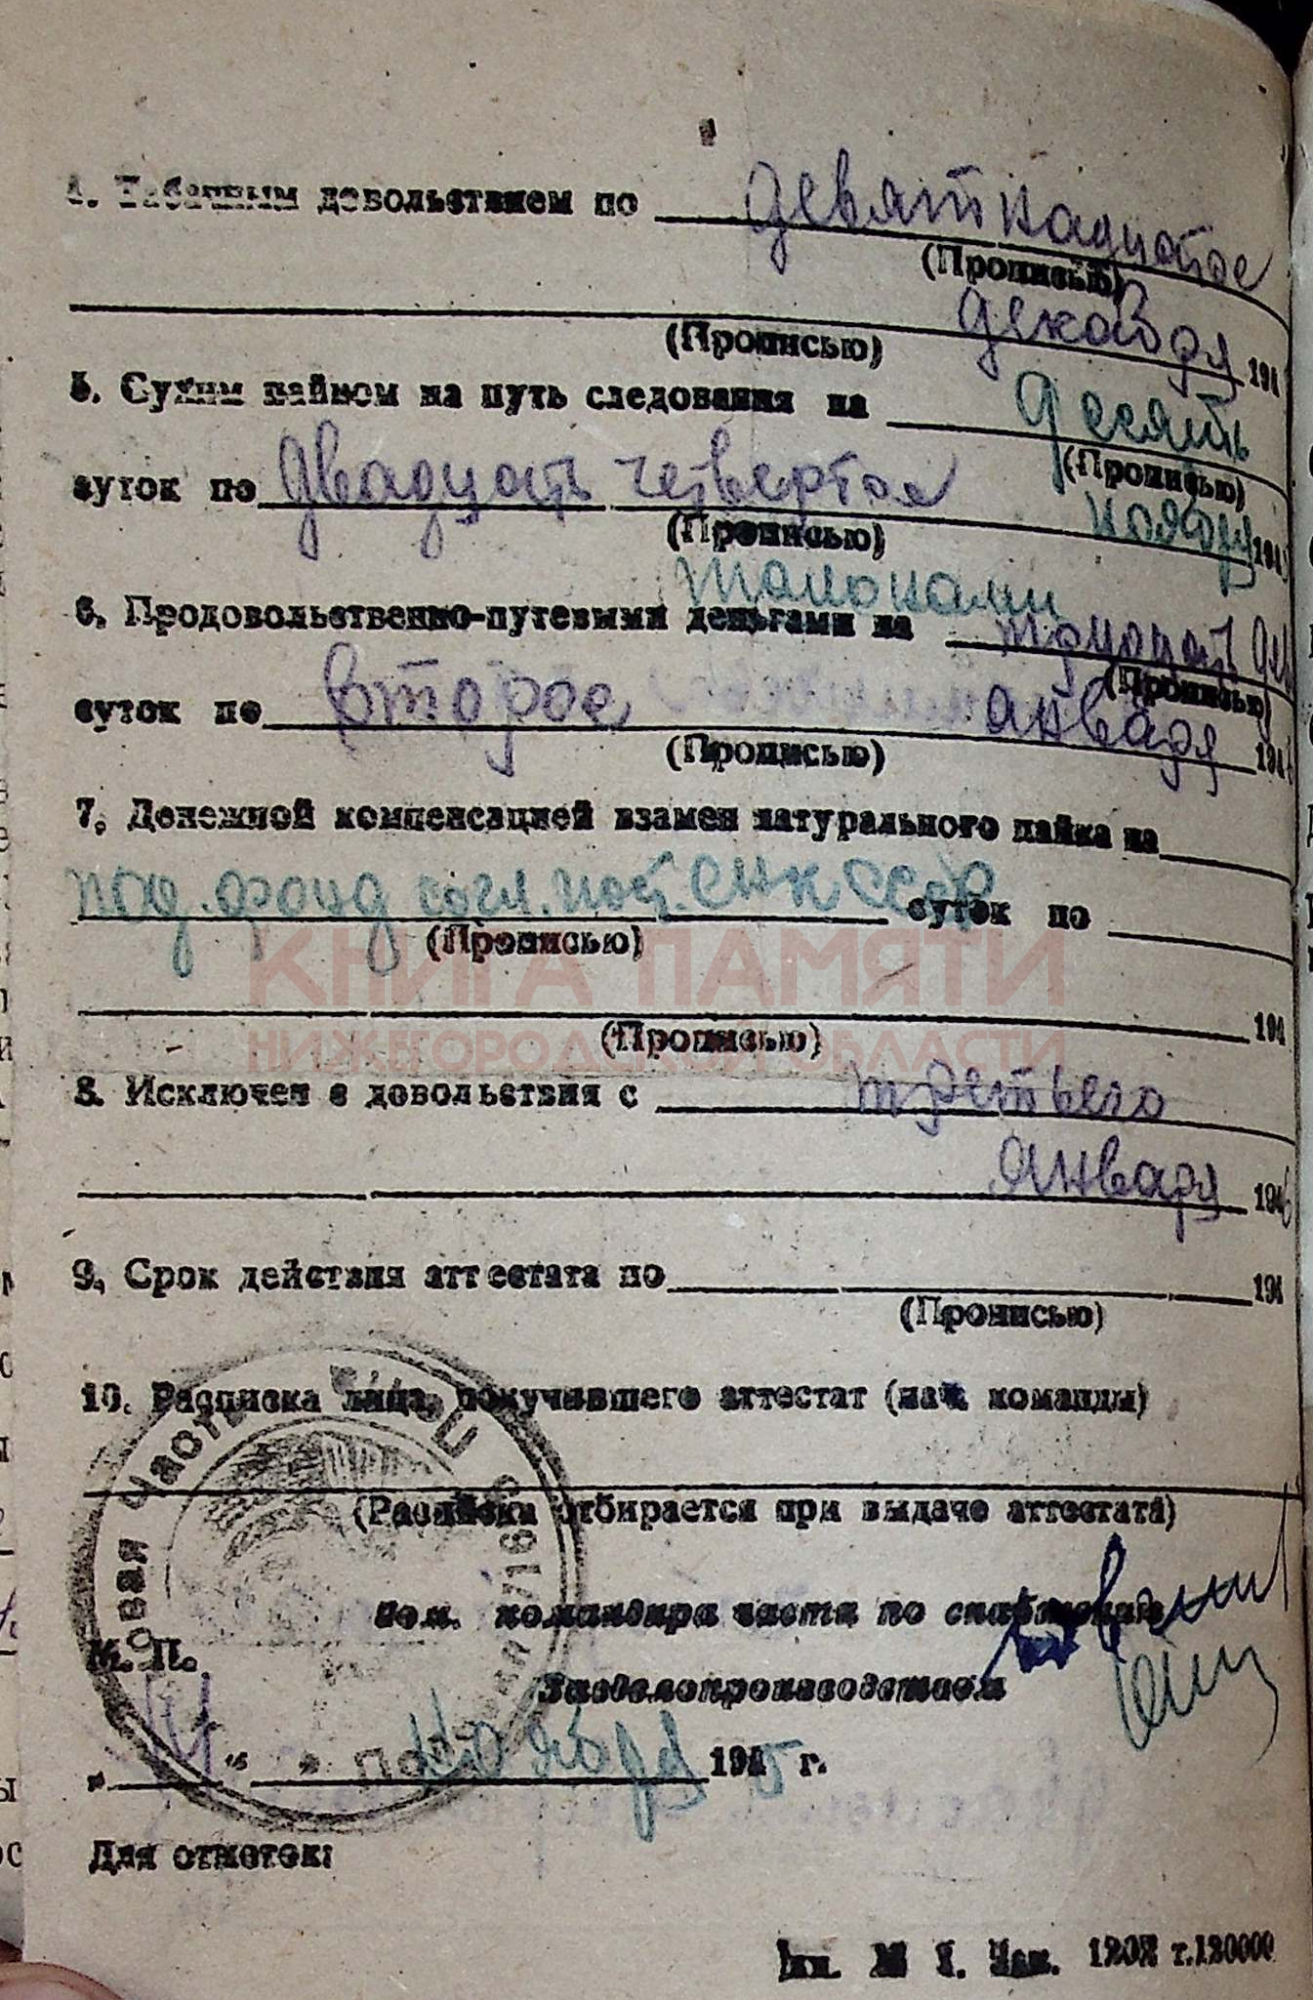 4. Табачным довольствием по девятнадцатое
(Прописью)
декабря 194
(Прописью)
5. Сухим пайком на путь следования на десять
(Прописью)
суток по двадцать четвертое ноября 194
(Прописью)
талонами
6. Продовольственно-путевыми деньгами на тридцать дев
(Прописью)
суток по второе января 194
(Прописью)
7. Денежной компенсацией взамен натурального пайка на
под. фонд согл. пост. СНК СССР суток по
(Прописью)
КНИГА ПАМЯТИ
194
(Прописью)
НИЖЕГОРОДСКОЙ ОБЛАСТИ
8. Исключен с довольствия с третьего
января 1946
9. Срок действия аттестата по 194
(Прописью)
10. Расписка лица, получившего аттестат (нач. команды)
(Расписка отбирается при выдаче аттестата)
Пом. командира части по снабжению
М. П.
Завделопроизводством
„14“ ноября 1945 г.
Для отметок:
т.120000